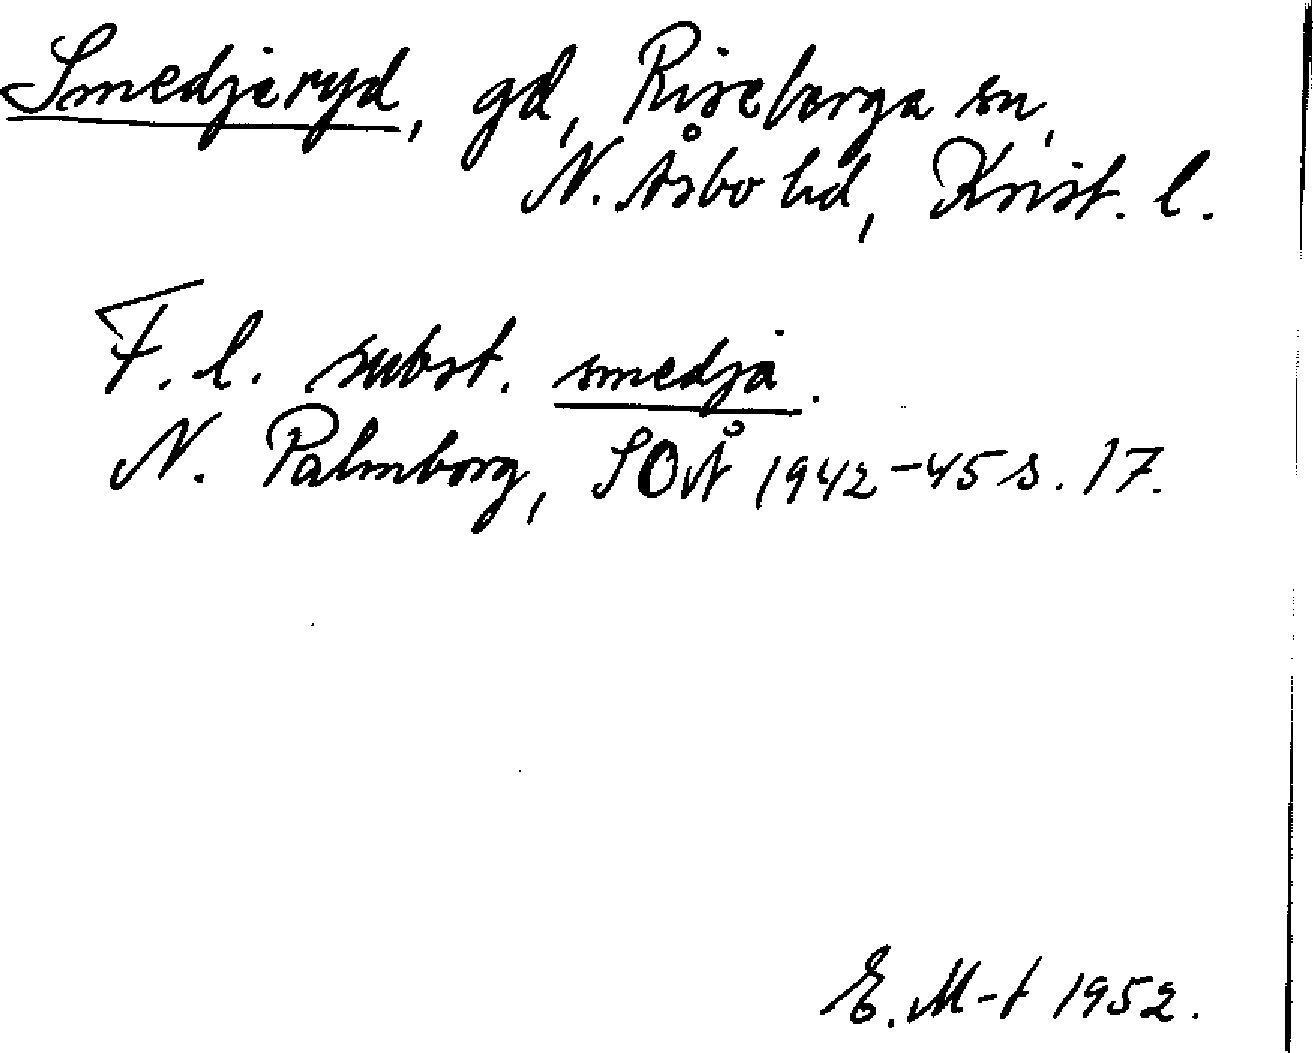 Smedjeryd, gd, Riseberga sn,
N. Åsbo hd, Krist. l.
F. l. subst. smedja.
N. Palmborg, SOÅ 1942-45 s. 17.
E. M-t 1952.